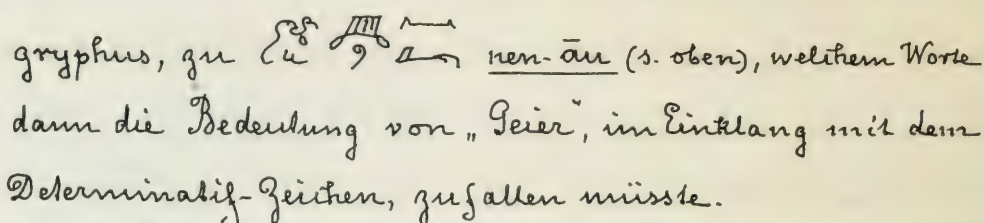 gryphus, zu nen-āu (s. oben), welchem Worte
dann die Bedeutung von „Geier", im Einklang mit dem
Determinatif-Zeichen, zufallen müsste.